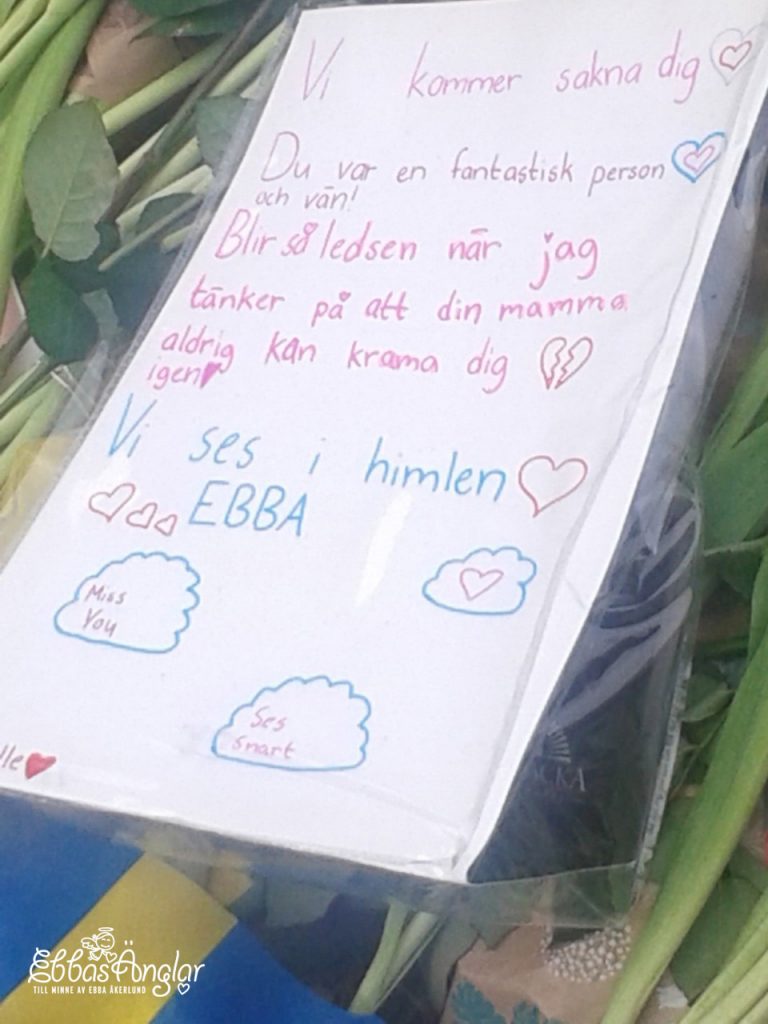 Vi kommer sakna dig
Du var en fantastisk person
och vän!
Blir så ledsen när jag
tänker på att din mamma
aldrig kan krama dig
igen
Vi ses i himlen
EBBA
Miss
You
Ses
snart
EbbasÄnglar
TILL MINNE AV EBBA ÅKERLUND